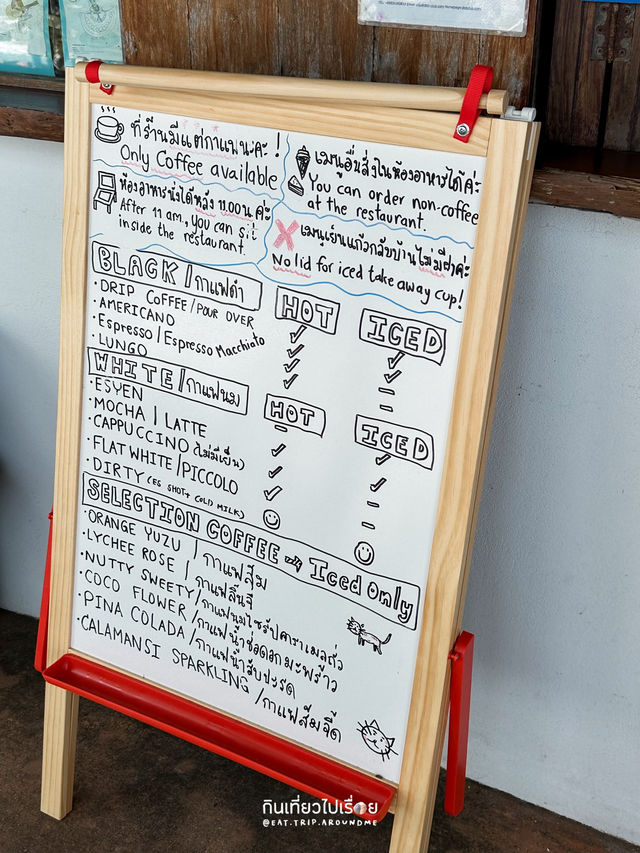 ที่ร้านมีแต่กาแฟนะคะ !
Only Coffee available
เมนูอื่นสั่งในห้องอาหารได้ค่ะ
You can order non-coffee
at the restaurant.
ห้องอาหารนั่งได้หลัง 11.00น ค่ะ
After 11 am, you can sit
inside the restaurant.
เมนูเย็นแก้วกลับบ้านไม่มีฝาค่ะ
No lid for iced take away cup!
BLACK/กาแฟดำ
HOT
ICED
·DRIP COFFEE/POUR OVER
·AMERICANO
·Espresso/Espresso Macchiato
·LUNGO
WHITE/กาแฟนม
HOT
ICED
·ESYEN
·MOCHA | LATTE
·CAPPUCCINO (ไม่มีเย็น)
·FLAT WHITE/PICCOLO
·DIRTY (ES SHOT+ COLD MILK)
SELECTION COFFEE → Iced Only
·ORANGE YUZU / กาแฟส้ม
·LYCHEE ROSE / กาแฟลิ้นจี่
·NUTTY SWEETY/กาแฟนมไซรัปคาราเมลถั่ว
·COCO FLOWER /กาแฟน้ำช่อดอกมะพร้าว
·PINA COLADA/กาแฟน้ำสับปะรด
·CALAMANSI SPARKLING /กาแฟส้มจี๊ด
กินเที่ยวไปเรื่อย
@EAT.TRIP.AROUNDME